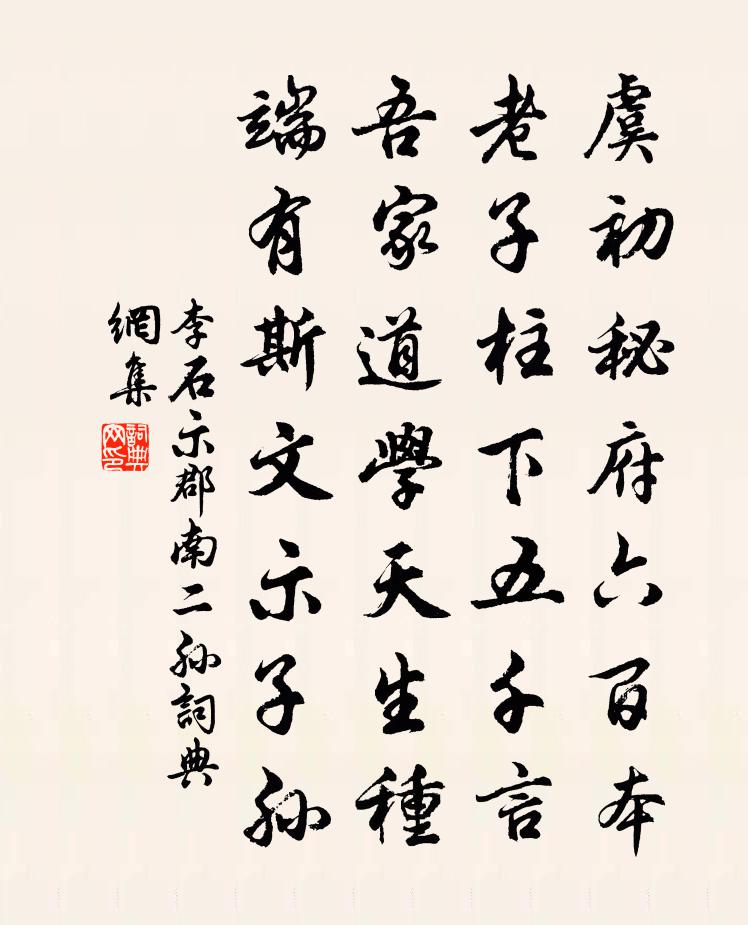 虞初秘府六百本
老子柱下五千言
吾家道學天生種
端有斯文示子孫
李石示郡南二孫詞典
網集
詞典網印